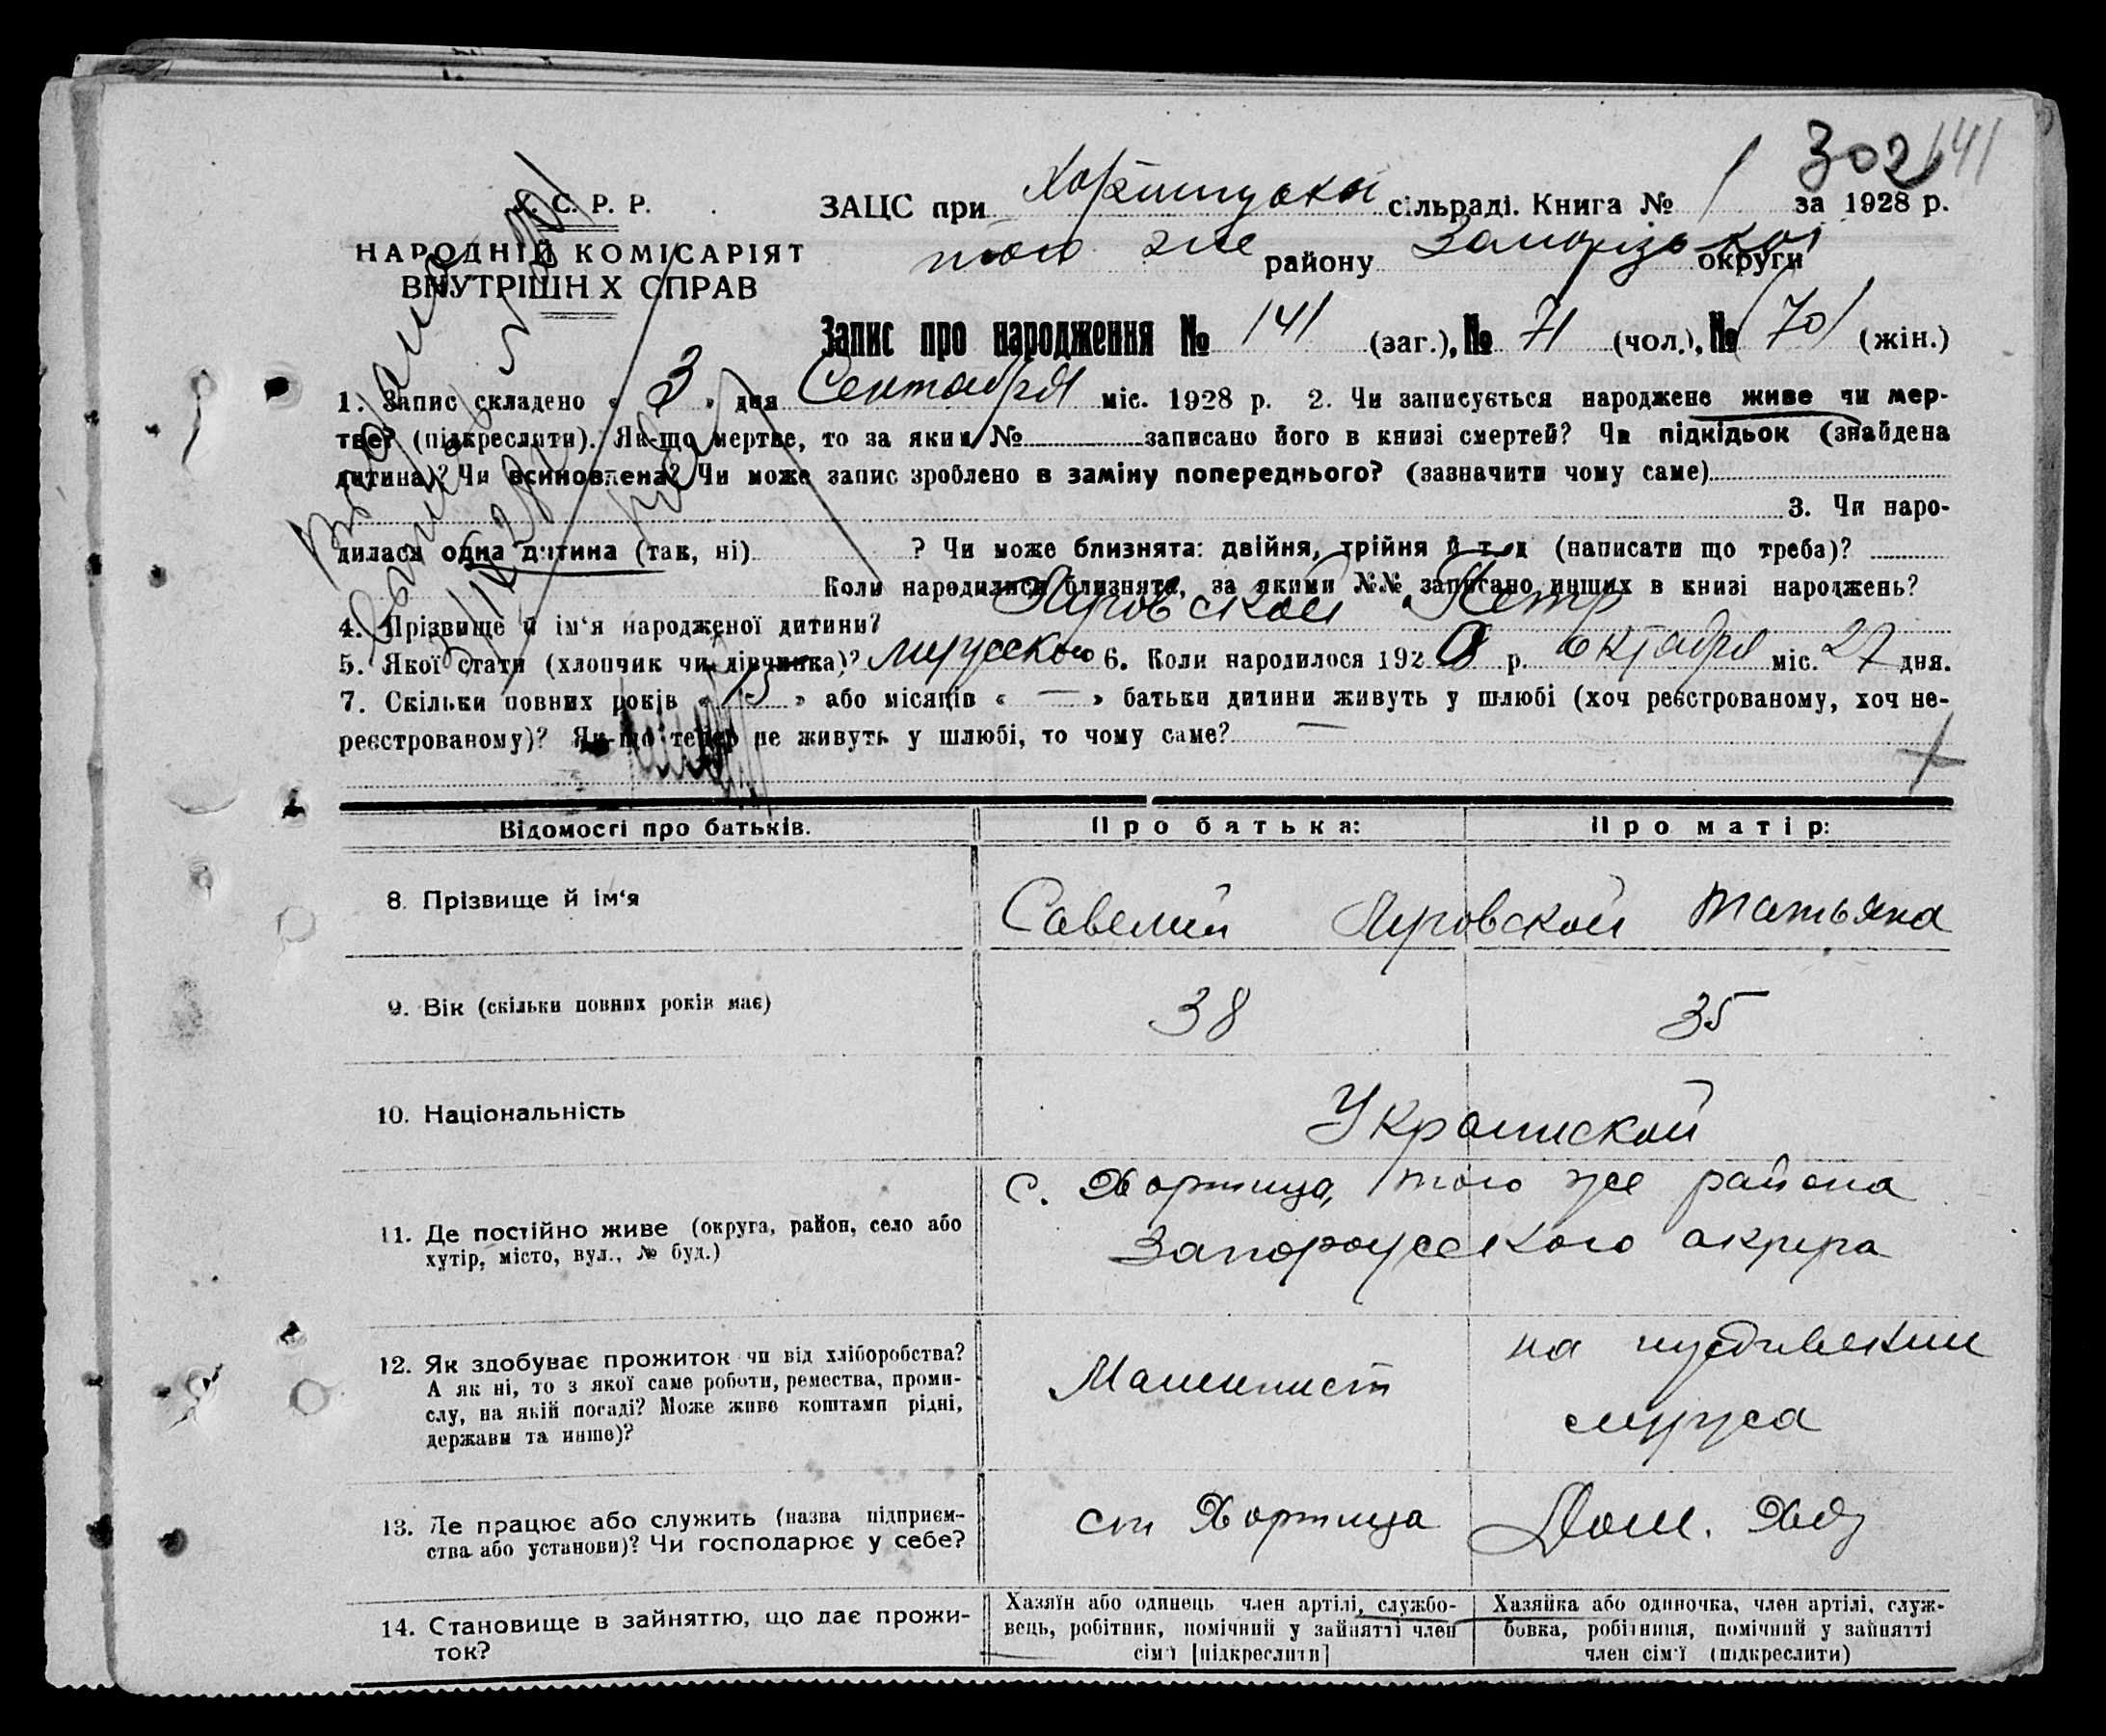 302 141
У. С. Р. Р.
НАРОДНІЙ КОМІСАРІЯТ
ВНУТРІШН Х СПРАВ
ЗАЦС при сільраді. Книга № 1 за 1928 р.
того же району округи
Запис про народження № 141 (заг.), № 71 (чол.), № 70 (жін.)
1. Запис складено « 3 » дня Сентабря міс. 1928 р. 2. Чи записується народжене живе чи мер-
тве? (підкреслити). Як-що мертве, то за яким № записано його в книзі смертей? Чи підкідьок (знайдена
дитина)? Чи всиновлена? Чи може запис зроблено в заміну попереднього? (зазначити чому саме)
3. Чи наро-
дилася одна дитина (так, ні) ? Чи може близнята: двійня, трійня й т. д (написати що треба)?
Коли народилися близнята, за якими №№ записано инших в книзі народжень?
4. Прізвище й ім‘я народженої дитини? Яровской Петр
5. Якої стати (хлопчик чи дівчинка)? 6. Коли народилося 192 8 р. октября міс. 27 дня.
7. Скільки повних років « 15 » або місяців « — » батьки дитини живуть у шлюбі (хоч реєстрованому, хоч не-
реєстрованому)? Як-що тепер не живуть у шлюбі, то чому саме? —
Відомості про батьків. Про батька: Про матір:
8. Прізвище й ім‘я Савелий Яровской Татьяна
9. Вік (скільки повних років має) 38 35
10. Національність Украинской
11. Де постійно живе (округа, район, село або
хутір, місто, вул., № буд.)
с. Хортица, того же района
Запорожского округа
12. Як здобуває прожиток чи від хліборобства?
А як ні, то з якої саме роботи, ремества, проми-
слу, на якій посаді? Може живе коштами рідні,
держави та инше)?
Машинист
на иждивении
мужа
13. Де працює або служить (назва підприєм-
ства або установи)? Чи господарює у себе?
ст Хортица Дом. Хоз
14. Становище в зайняттю, що дає прожи-
ток?
Хазяїн або одинець член артілі, службо-
вець, робітник, помічний у зайнятті член
сім‘ї [підкреслити]
Хазяйка або одиночка, член артілі, служ-
бовка, робітниця, помічний у зайнятті
член сім‘ї (підкреслити)